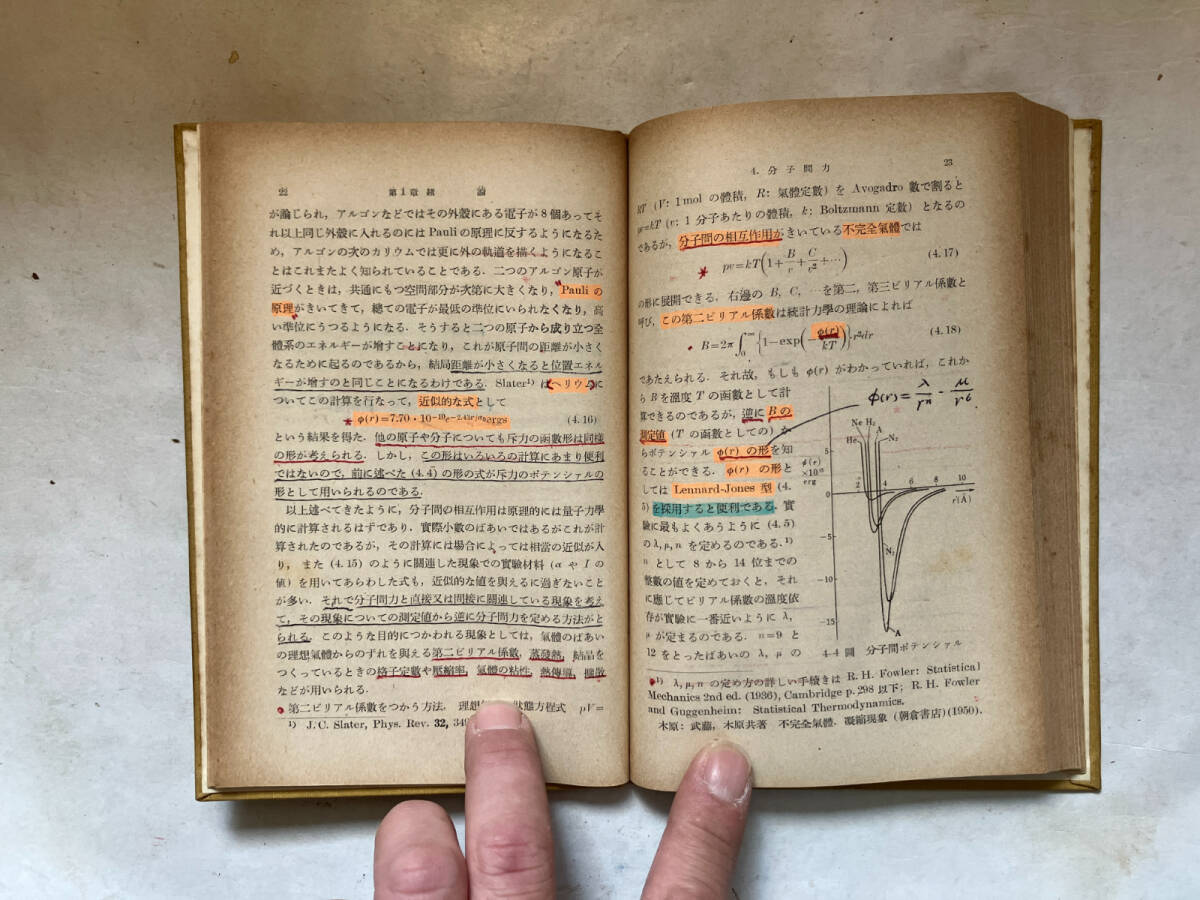 22 第1章 緒 論
が論じられ，アルゴンなどではその外殼にある電子が8個あってそ
れ以上同じ外殼に入れるのにはPauliの原理に反するようになるた
め，アルゴンの次のカリウムでは更に外の軌道を描くようになるこ
とはこれまたよく知られていることである．二つのアルゴン原子が
近づくときは，共通にもつ空間部分が次第に大きくなり，Pauli の
原理がきいてきて，總ての電子が最低の準位にいられなくなり，高
い準位にうつるようになる．そうすると二つの原子から成り立つ全
體系のエネルギーが增すことになり，これが原子間の距離が小さく
なるために起るのであるから，結局距離が小さくなると位置エネル
ギーが增すのと同じことになるわけである．Slater¹⁾ はヘリウムに
ついてこの計算を行なって，近似的な式として
φ(r)=7.70·10⁻¹⁰e^{-2.43r/a₀}ergs (4.16)
という結果を得た．他の原子や分子についても斥力の函數形は同樣
の形が考えられる．しかし，この形はいろいろの計算にあまり便利
ではないので，前に述べた (4.4) の形の式が斥力のポテンシャルの
形として用いられるのである．
以上述べてきたように，分子間の相互作用は原理的には量子力學
的に計算されるはずであり，實際小數のばあいではあるがこれが計
算されたのであるが，その計算には場合によっては相當の近似が入
り，また (4.15) のように關連した現象での實驗材料 (α や I の
値) を用いてあらわした式も，近似的な値を與えるに過ぎないこと
が多い．それで分子間力と直接又は間接に關連している現象を考え
て，その現象についての測定値から逆に分子間力を定める方法がと
られる．このような目的につかわれる現象としては，氣體のばあい
の理想氣體からのずれを與える第二ビリアル係數，蒸發熱，結晶を
つくっているときの格子定數や壓縮率，氣體の粘性，熱傳導，擴散
などが用いられる．
第二ビリアル係數をつかう方法． 理想 狀態方程式 pV=
1) J.C. Slater, Phys. Rev. 32,
4. 分子間力 23
RT (V: 1mol の體積，R: 氣體定數) を Avogadro 數で割ると
pv=kT (v: 1 分子あたりの體積，k: Boltzmann 定數) となるの
であるが，分子間の相互作用がきいている不完全氣體では
pv=kT(1+B/v+C/v²+···) (4.17)
の形に展開できる．右邊の B, C, ··· を第二，第三ビリアル係數と
呼び，この第二ビリアル係數は統計力學の理論によれば
B=2π∫₀^∞{1−exp(−φ(r)/kT)}r²dr (4.18)
であたえられる．それ故，もしも φ(r) がわかっていれば，これか
ら B を溫度 T の函數として計
算できるのであるが，逆に B の
測定値 (T の函數としての) か
らポテンシャル φ(r) の形を知
ることができる．φ(r) の形と
しては Lennard-Jones 型 (4.
5) を採用すると便利である．實
驗に最もよくあうように (4.5)
の λ, μ, n を定めるのである．¹⁾
n として 8 から 14 位までの
整數の値を定めておくと，それ
に應じてビリアル係數の溫度依
存が實驗に一番近いように λ,
μ が定まるのである．n=9 と
12 をとったばあいの λ, μ の
φ(r)= λ/rⁿ − μ/r⁶
Ne H₂ A
He N₂
φ(r)
×10¹⁵
erg
5
0
−5
−10
−15
2 4 6 8 10
r(Å)
N₂
A
4-4 圖 分子間ポテンシャル
1) λ, μ, n の定め方の詳しい手續きは R. H. Fowler: Statistical
Mechanics 2nd ed. (1936), Cambridge p. 298 以下; R. H. Fowler
and Guggenheim: Statistical Thermodynamics.
木原: 武藤，木原共著 不完全氣體・凝縮現象 (朝倉書店) (1950).